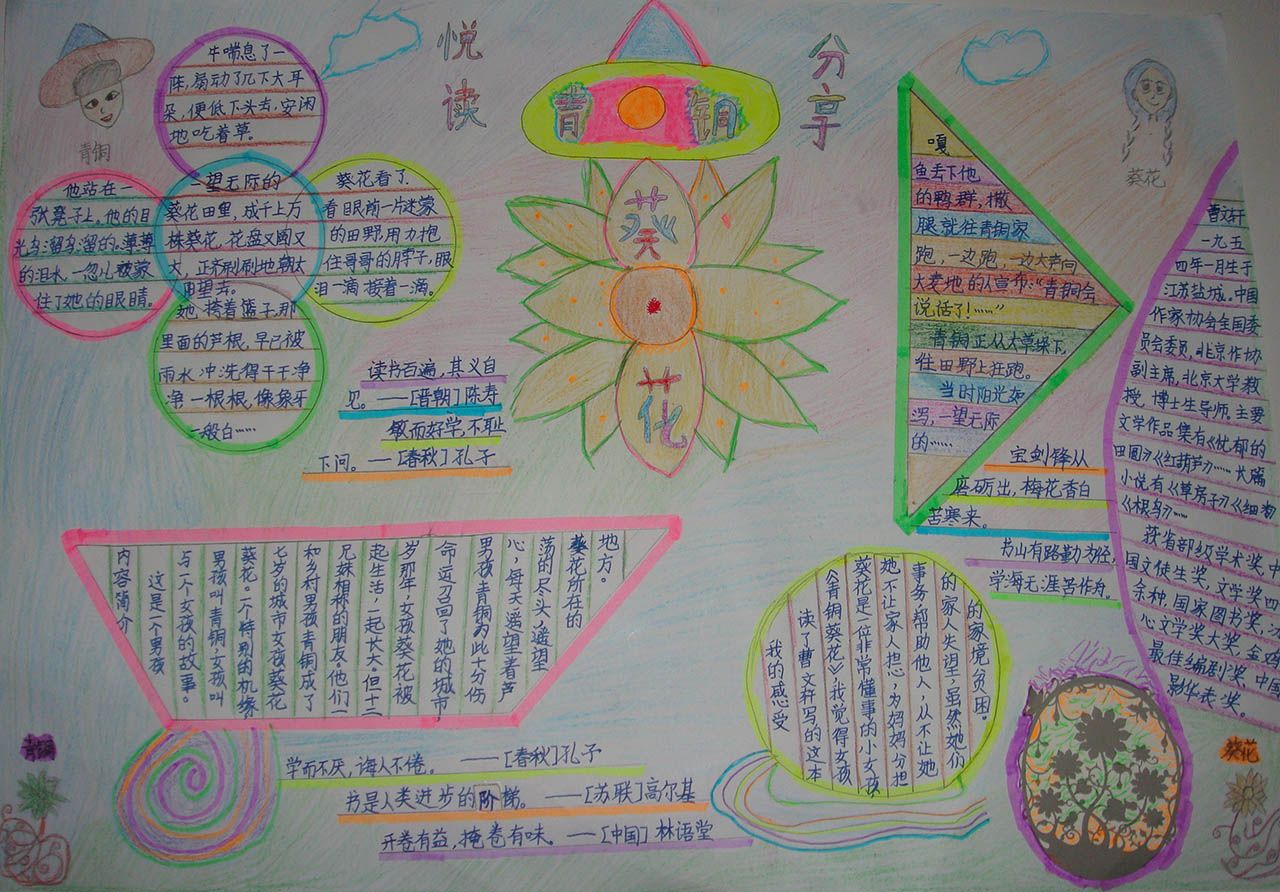 悦读
分享
青铜
葵花
青铜
葵花
牛喘息了一
阵,扇动了几下大耳
朵,便低下头去,安闲
地吃着草。
他站在一
张凳子上,他的目
光乌溜乌溜的。薄薄
的泪水,一忽儿被蒙
住了她的眼睛。
一望无际的
葵花田里,成千上万
株葵花,花盘又圆又
大,正齐刷刷地朝太
阳望去。
葵花看了
看眼前一片迷蒙
的田野,用力抱
住哥哥的脖子,眼
泪一滴接着一滴。
她挎着篮子,那
里面的芦根,早已被
雨水冲洗得干干净
净一根根,像象牙
一般白……
读书百遍,其义自
见。——[晋朝]陈寿
敏而好学,不耻
下问。——[春秋]孔子
嘎
鱼丢下他
的鸭群,撒
腿就往青铜家
跑,一边跑,一边大声向
大麦地的人宣布:“青铜会
说话了!……”
青铜正从大草垛下,
往田野上狂跑。
当时阳光
泻,一望无际
的……
宝剑锋从
磨砺出,梅花香自
苦寒来。
书山有路勤为径,
学海无涯苦作舟。
曹文轩
一九五
四年一月生于
江苏盐城。中国
作家协会全国委
员会委员,北京作协
副主席,北京大学教
授,博士生导师。主要
文学作品集有《忧郁的
田园》《红葫芦》……长篇
小说有《草房子》《细米》
《根鸟》……
获省部级学术奖,中
国文徒生奖,文学奖四
余种,国家图书奖,
心文学奖大奖,金鸡
最佳编剧奖,中国
影华表奖。
内容简介
这是一个男孩
与一个女孩的故事。
男孩叫青铜,女孩叫
葵花。一个特别的机缘,
七岁的城市女孩葵花
和乡村男孩青铜成了
兄妹相称的朋友,他们一
起生活、一起长大。但十二
岁那年,女孩葵花被
命运召回了她的城市,
男孩青铜为此十分伤
心,每天遥望着芦
荡的尽头,遥望
葵花所在的
地方。
我的感受
读了曹文轩写的这本
《青铜葵花》,我觉得女孩
葵花是一位非常懂事的小女孩
她不让家人担心,为妈妈分担
事务,帮助他人,从不让她
的家人失望,虽然她们
的家境贫困。
学而不厌,诲人不倦。——[春秋]孔子
书是人类进步的阶梯。——[苏联]高尔基
开卷有益,掩卷有味。——[中国]林语堂
青铜
葵花